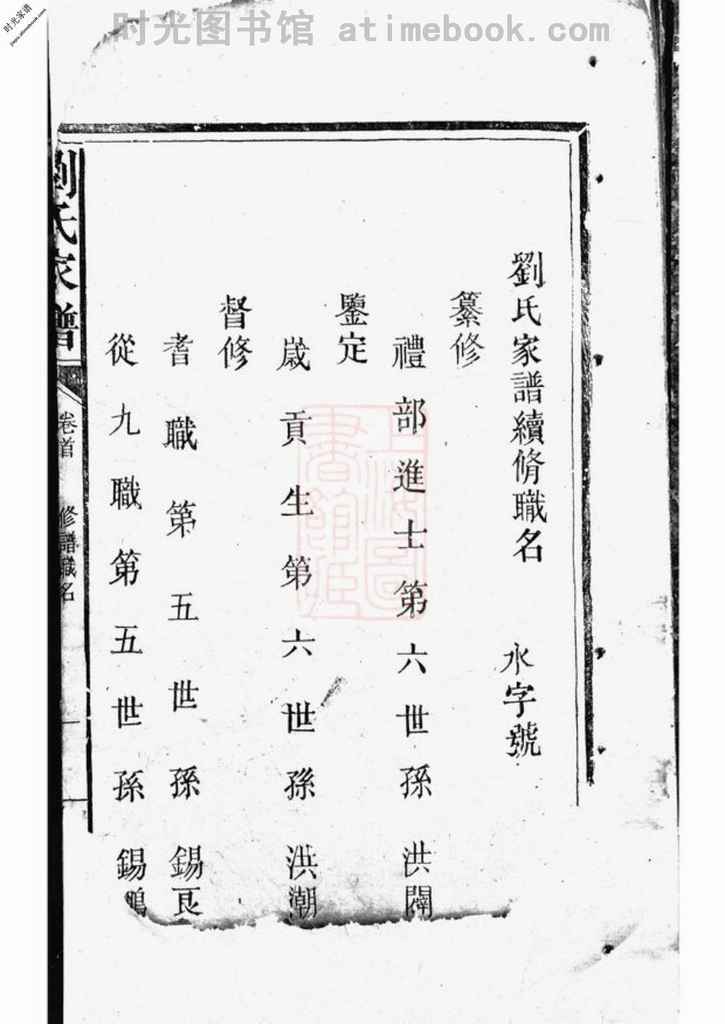 时光图书馆 atimebook.com
时光家谱
劉氏家譜續脩職名 水字號
纂修
禮部進士第六世孫洪闡
鑒定
歲貢生第六世孫洪潮
督修
耆職第五世孫錫良
從九職第五世孫錫鵬
劉氏家譜
卷首 修譜職名 一